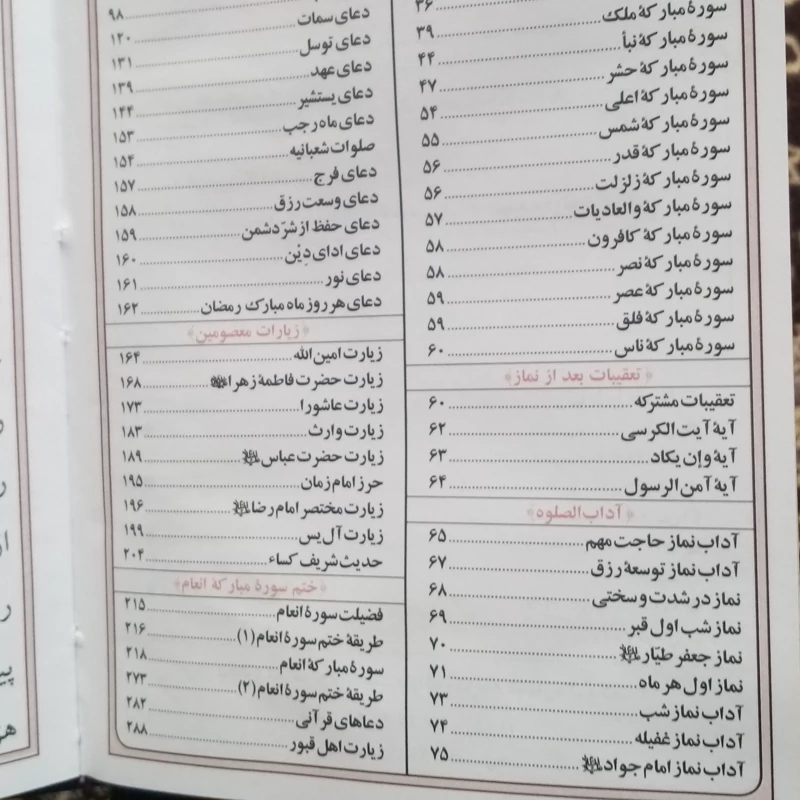 ۳۶
سورهٔ مبارکهٔ ملک ۳۹
سورهٔ مبارکهٔ نبأ ۴۴
سورهٔ مبارکهٔ حشر ۴۷
سورهٔ مبارکهٔ اعلی ۵۴
سورهٔ مبارکهٔ شمس ۵۵
سورهٔ مبارکهٔ قدر ۵۶
سورهٔ مبارکهٔ زلزلت ۵۶
سورهٔ مبارکهٔ والعادیات ۵۷
سورهٔ مبارکهٔ کافرون ۵۸
سورهٔ مبارکهٔ نصر ۵۸
سورهٔ مبارکهٔ عصر ۵۹
سورهٔ مبارکهٔ فلق ۵۹
سورهٔ مبارکهٔ ناس ۶۰
﴿تعقیبات بعد از نماز﴾
تعقیبات مشترکه ۶۰
آیهٔ آیت الکرسی ۶۲
آیهٔ وإن یکاد ۶۳
آیهٔ آمن الرسول ۶۴
﴿آداب الصلوه﴾
آداب نماز حاجت مهم ۶۵
آداب نماز توسعهٔ رزق ۶۷
نماز در شدت و سختی ۶۸
نماز شب اول قبر ۶۹
نماز جعفر طیّار ۷۰
نماز اول هر ماه ۷۱
آداب نماز شب ۷۳
آداب نماز غفیله ۷۴
آداب نماز امام جواد ۷۵
دعای سمات ۹۸
دعای توسل ۱۲۰
دعای عهد ۱۳۱
دعای یستشیر ۱۳۹
دعای ماه رجب ۱۴۴
صلوات شعبانیه ۱۵۳
دعای فرج ۱۵۴
دعای وسعت رزق ۱۵۷
دعای حفظ از شرّ دشمن ۱۵۸
دعای ادای دِیْن ۱۵۹
دعای نور ۱۶۰
دعای هر روز ماه مبارک رمضان ۱۶۱
۱۶۲
﴿زیارات معصومین﴾
زیارت امین الله ۱۶۴
زیارت حضرت فاطمهٔ زهرا ۱۶۸
زیارت عاشورا ۱۷۳
زیارت وارث ۱۸۳
زیارت حضرت عباس ۱۸۹
حرز امام زمان ۱۹۵
زیارت مختصر امام رضا ۱۹۶
زیارت آل یس ۱۹۹
حدیث شریف کساء ۲۰۴
﴿ختم سورهٔ مبارکهٔ انعام﴾
فضیلت سورهٔ انعام ۲۱۵
طریقهٔ ختم سورهٔ انعام (۱) ۲۱۶
سورهٔ مبارکهٔ انعام ۲۱۸
طریقهٔ ختم سورهٔ انعام (۲) ۲۷۳
دعاهای قرآنی ۲۸۲
زیارت اهل قبور ۲۸۸